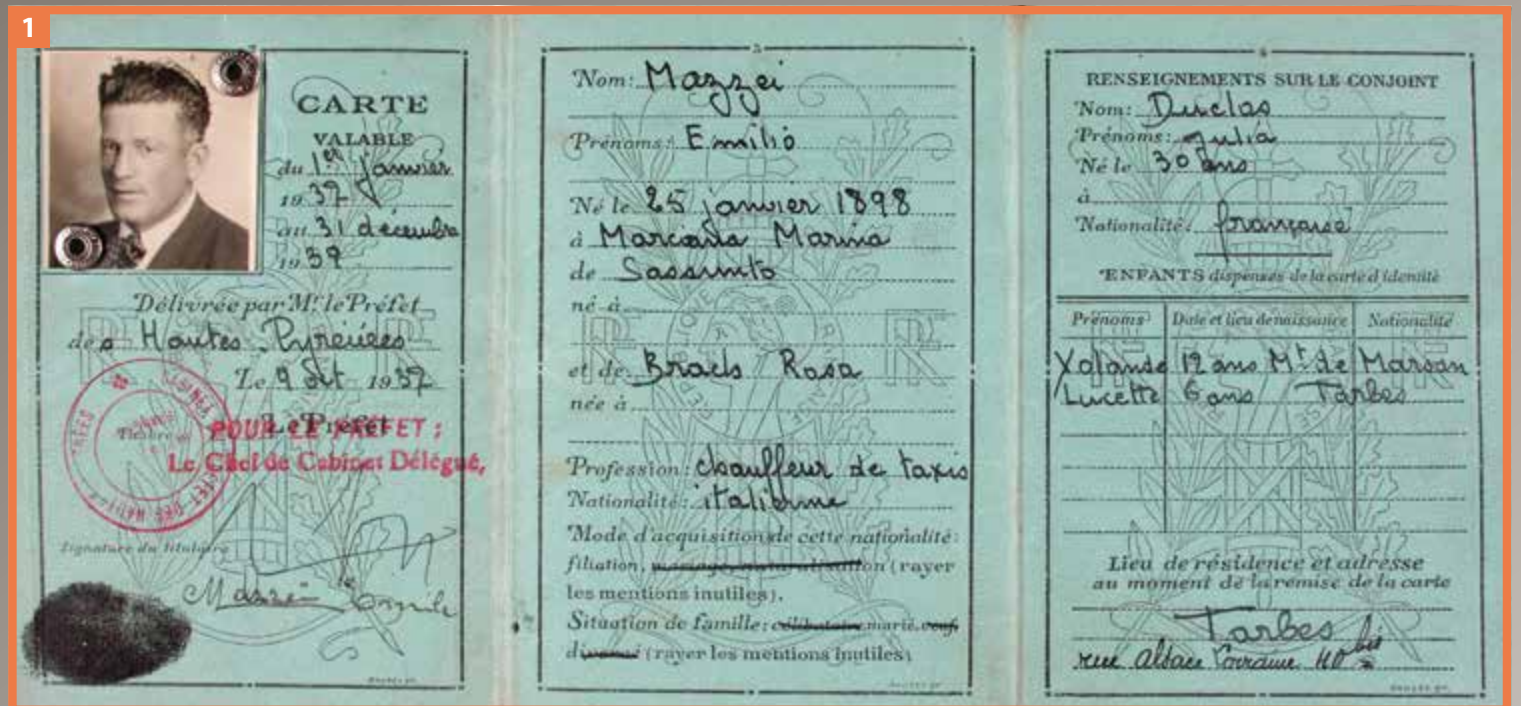 1
CARTE
VALABLE
du 1er janvier
1937
au 31 décembre
1939
Délivrée par Mr. le Préfet
des Hautes Pyrénées
Le 9 Oct 1937
Le Préfet
POUR LE PREFET :
Le Chef de Cabinet Délégué,
Signature du titulaire
Mazzei Emile
3
Nom: Mazzei
Prénoms: Emilio
Né le 25 janvier 1898
à Marciana Marina
de
né à
et de Rosa
née à
Profession: chauffeur de taxis
Nationalité: italienne
Mode d'acquisition de cette nationalité:
filiation, mariage, naturalisation (rayer
les mentions inutiles).
Situation de famille: célibataire marié, veuf,
divorcé (rayer les mentions inutiles)
RENSEIGNEMENTS SUR LE CONJOINT
Nom: Duclas
Prénoms: Julia
Né le 30 ans
à
Nationalité: française
ENFANTS dispensés de la carte d'identité
Prénoms Date et lieu de naissance Nationalité
Yolande 12 ans Mt de Marsan
Lucette 6 ans Tarbes
Lieu de résidence et adresse
au moment de la remise de la carte
Tarbes
rue Alsace Lorraine 40 bis